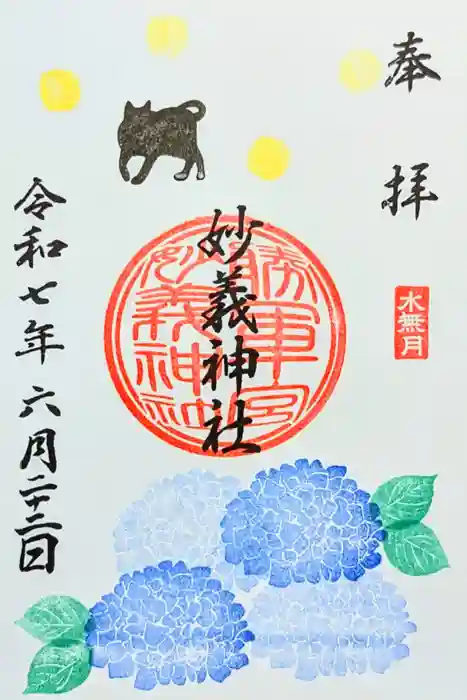 奉拝
水無月
妙義神社
勝軍宮
妙義神社
令和七年六月二十二日